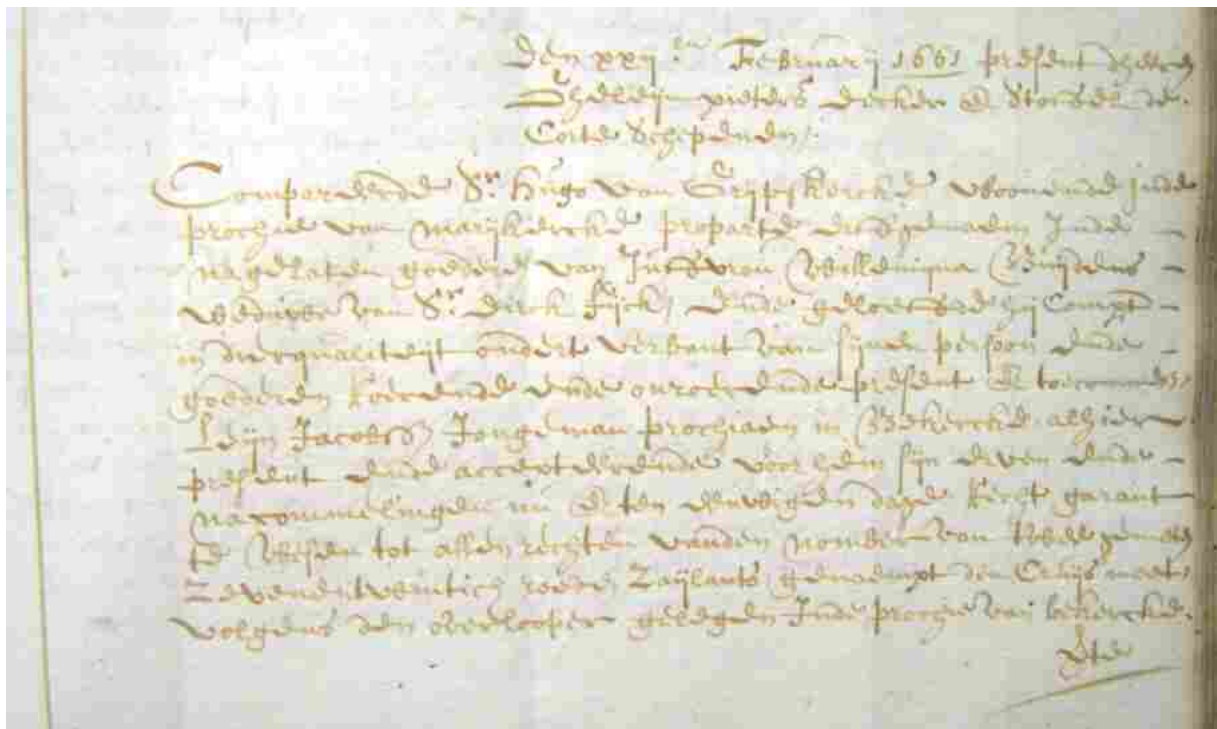 Den xxij.en Februarij 1661 present d'heeren
Gheleijn Pieters decker & de
Corte Schepenen /.
Compareerde Sr. Hugo van Grijpskercke woonende inde
prochie van Marijkercke proparte erfgenaem Inde
nagelaten goederen van Juffvrou Willemijna
weduwe van Sr. Dirck Fijck / ende geloefde hij Compt
in dier qualiteijt ondert verbant van sijnen persoon ende
goederen roerende ende onroerende present & toecommende
Leijn Jacobss Jongeman prochiaen in Bekercke alhier
present ende accepterende voor hem sijn erven ende
nacommelingen nu & ten eeuwigen dage Recht garant
te wesen tot allen rechten vanden nomber van twee gemeten
Zevenentwintich roeden Zaijlants genaempt den meet
volgens den overlooper gelegen Inde prochie van bekercke.